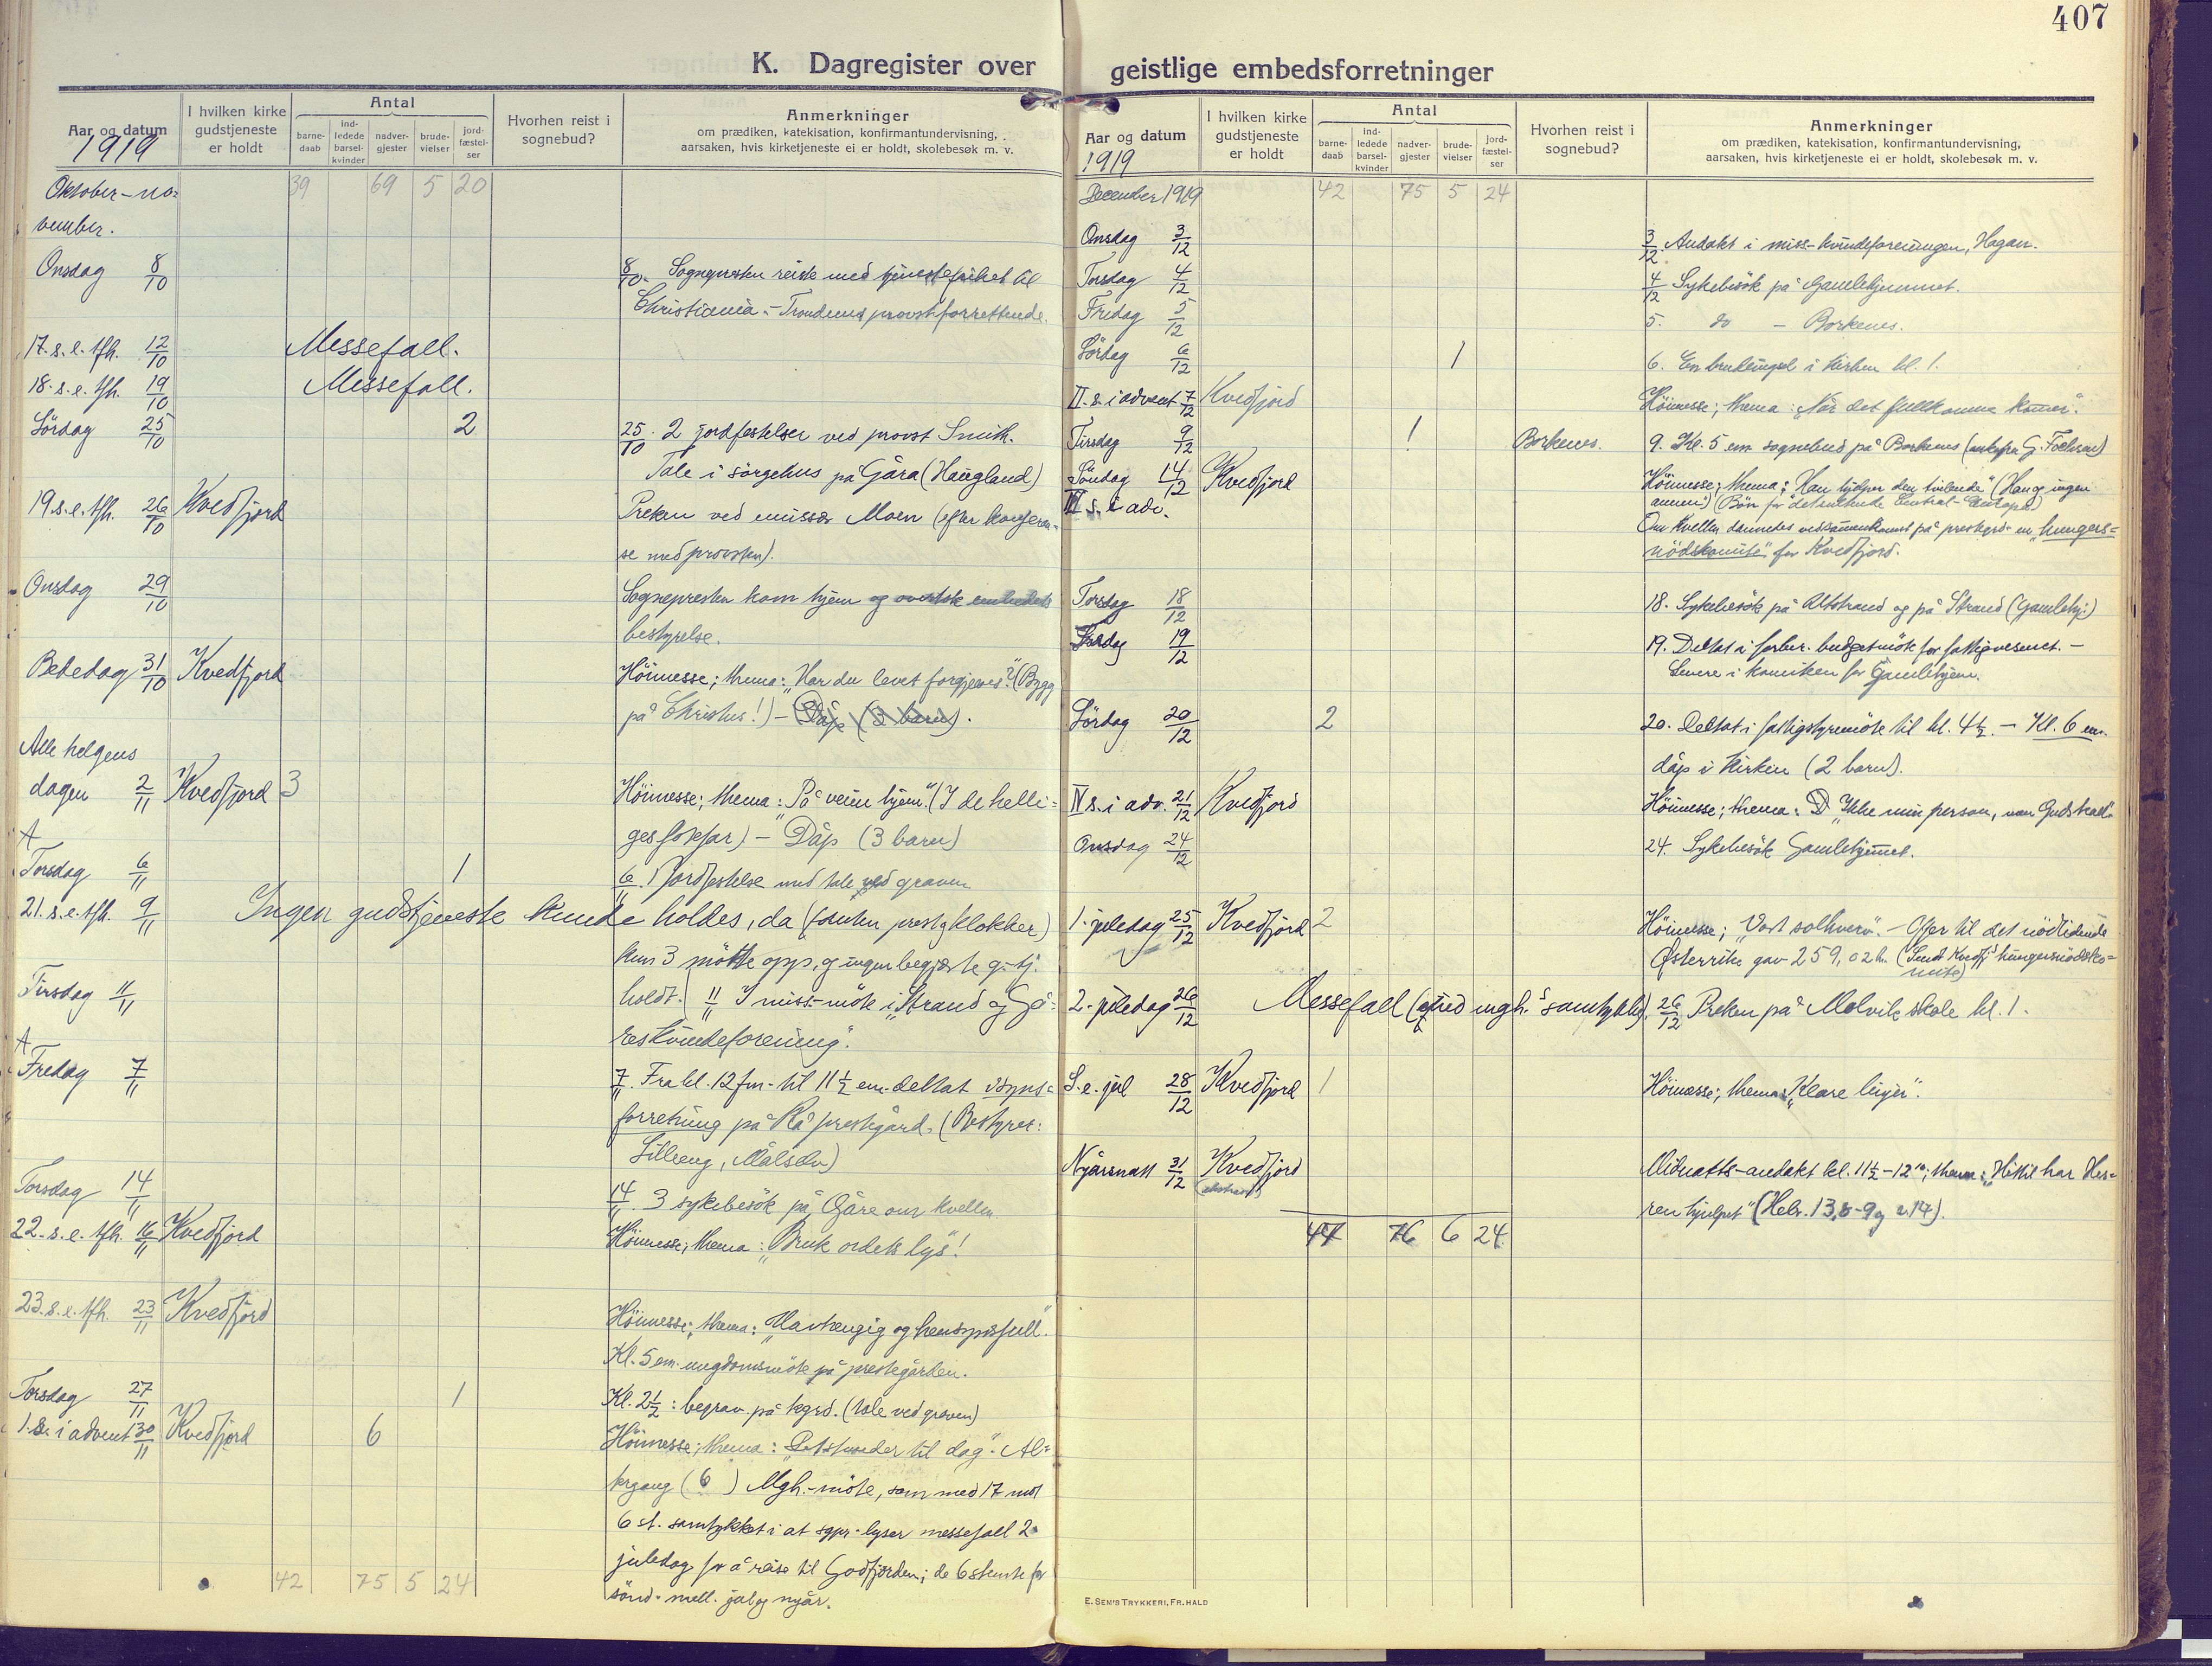 407
K. Dagregister over
geistlige embedsforretninger
Aar og datum
1919
I hvilken kirke
gudstjeneste
er holdt
Antal
barne-
daab
ind-
ledede
barsel-
kvinder
nadver-
gjester
brude-
vielser
jord-
fæstel-
ser
Hvorhen reist i
sognebud?
Anmerkninger
om prædiken, katekisation, konfirmantundervisning,
aarsaken, hvis kirketjeneste ei er holdt, skolebesøk m. v.
Oktober-no= 39 69 5 20
vember.
Onsdag 8/10 8/10. Sognepresten reiste med tjenestefrihet til
Christiania. - Trondenes provst forrettende.
17. s. e. tfh. 12/10 Messefall.
18. s. e. tfh. 19/10 Messefall.
Lördag 25/10 2 25/10. 2 jordfestelser ved provst Smith.
Tale i sörgehus på Gåra (Haugland)
19. s. e. tfh. 26/10 Kvedfjord Preken ved emissær Moen (efter konferan-
se med provsten).
Onsdag 29/10 Sognepresten kom hjem og overtok embedets
bestyrelse.
Bededag 31/10 Kvedfjord Höimesse; thema: "Har du levet forgjeves?" (Bygg
på Christus!) - Dåp (3 barn).
Alle helgens
dagen 2/11 Kvedfjord 3 Höimesse; thema: "På veien hjem." (I de helli=
ges fotspor) - Dåp (3 barn)
A
Torsdag 6/11 1 6/11. 1 jordfestelse med tale ved graven
21. s. e. tfh. 9/11 Ingen gudstjeneste kunde holdes, da (foruten prest og klokker)
kun 3 mötte opp, og ingen begjærte g.tj.
Tirsdag 11/11 holdt. 11/11 I miss-möte i "Strand og Gå-
res kvindeforening".
A
Fredag 7/11 7/11. Fra kl. 12 fm. til 11½ em. deltat i syns=
forretning på Rå prestegård. (Bestyrer:
Lilleeng, Målselv)
Torsdag 14/11 14/11. 3 sykebesök på Gåre om kvellen
22. s. e. tfh. 16/11 Kvedfjord Höimesse; thema: "Bruk ordets lys"!
23. s. e. tfh. 23/11 Kvedfjord Höimesse; thema: "Uavhengig og hensynsfull".
Kl. 5 em. ungdomsmöte på prestegården.
Torsdag 27/11 1 Kl. 2½: begrav. på kgrd. (tale ved graven)
1. s. i advent 30/11 Kvedfjord 6 Höimesse; thema: "Det stunder til dag". Al=
tergang (6) Mgh.-möte, som med 17 mot
6 st. samtykket i at sgpr. lyser messefall 2.
juledag for å reise til Godfjorden; de 6 stemte for
sönd. mell. jul og nyår.
42 75 5 24
Aar og datum
1919
I hvilken kirke
gudstjeneste
er holdt
Antal
barne-
daab
ind-
ledede
barsel-
kvinder
nadver-
gjester
brude-
vielser
jord-
fæstel-
ser
Hvorhen reist i
sognebud?
Anmerkninger
om prædiken, katekisation, konfirmantundervisning,
aarsaken, hvis kirketjeneste ei er holdt, skolebesøk m. v.
December 1919 42 75 5 24
Onsdag 3/12 3/12. Andakt i miss-kvindeforeningen, Hagan.
Torsdag 4/12 4/12 Sykebesök på Gamlehjemmet.
Fredag 5/12 5. do - Borkenes.
Lördag 6/12 1 6. En brudevigsel i kirken kl. 1.
II. s. i advent 7/12 Kvedfjord Höimesse; thema: "Når det fullkomne kommer".
Tirsdag 9/12 1 Borkenes. 9. Kl. 5 em. sognebud på Borkenes
Söndag 14/12 Kvedfjord Höimesse; thema: "Han hjelper den tvilende" (Han og ingen
III s. i adv. annen!) (Bön for det sultende Central-Europa)
Om kvellen dannedes ved sammenkomst på prestegrd. en "hungers=
nödskomite" for Kvedfjord.
Torsdag 18/12 18. Sykebesök på Altstrand og på Strand (gamlehj.)
Fredag 19/12 19. Deltat i forber. budgetmöte for fattigvesenet. -
Senere i komiteen for Gamlehjem.
Lördag 20/12 2 20. Deltat i fattigstyremöte til kl. 4½. - Kl. 6 em.
dåp i kirken (2 barn).
IV s. i adv. 21/12 Kvedfjord Höimesse; thema: "Ikke min person, men Guds kall"
Onsdag 24/12 24. Sykebesök Gamlehjemmet.
1. juledag 25/12 Kvedfjord 2 Höimesse; "Vort solhverv". - Offer til det nödlidende
Østerrike gav 259,02 k. (Sendt Kvedfj. hungersnödsko-
mite)
2. juledag 26/12 Messefall (med mgh.s samtykke). 26/12 Preken på Molvik skole kl. 1.
S. e. jul 28/12 Kvedfjord 1 Höimesse; thema: "Klare linjer".
Nyårsnatt 31/12 Kvedfjord Midnatts-andakt kl. 11½-12¹⁰; thema: "Hittil har Her=
(ekstraord) ren hjulpet" (Hebr. 13,8-9 og v. 14).
47 76 6 24
E. SEM'S TRYKKERI, FR.HALD